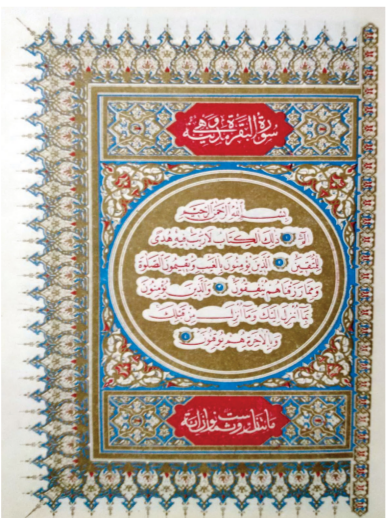 سورة البقرة مدنية وهي
بسم الله الرحمن الرحيم
الم ۝١ ذلك الكتاب لا ريب فيه هدى
للمتقين ۝٢ الذين يؤمنون بالغيب ويقيمون الصلوة
ومما رزقناهم ينفقون ۝٣ والذين يؤمنون
بما أنزل إليك وما أنزل من قبلك
وبالآخرة هم يوقنون ۝٤
مائتان وست وثمانون آية